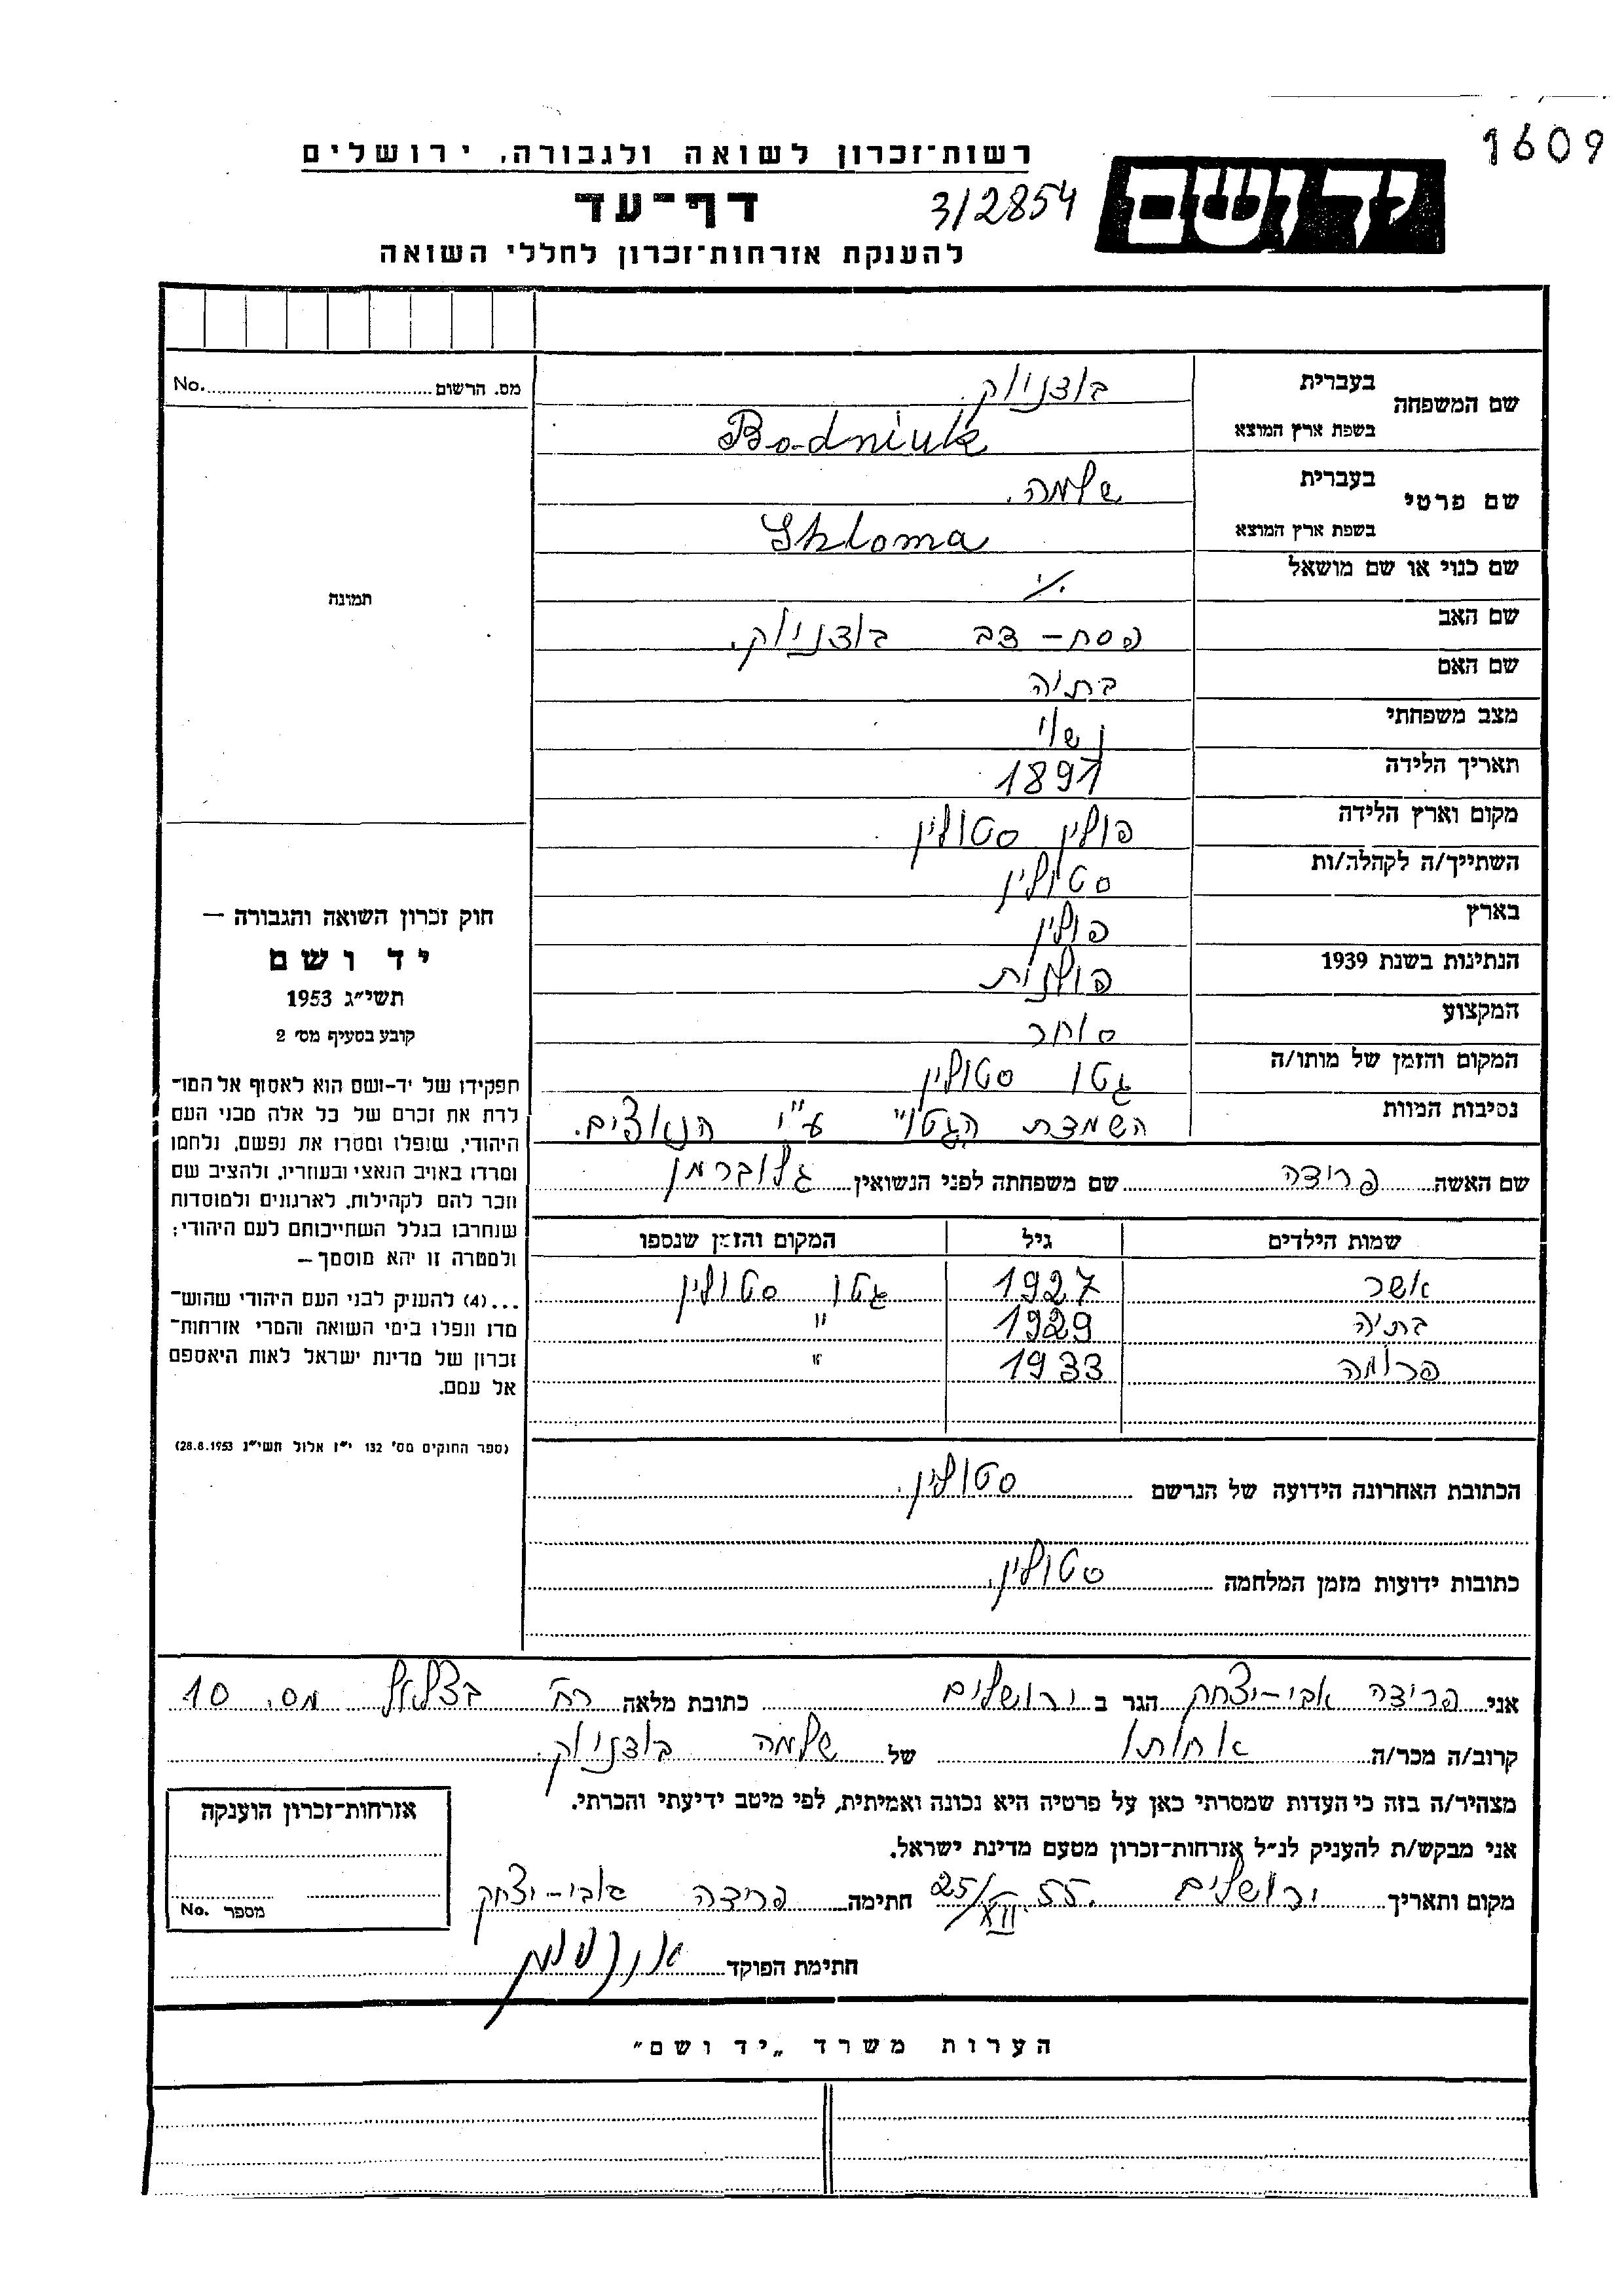 1609
רשות־זכרון לשואה ולגבורה, ירושלים
יד ושם
דף־עד
3/2854
להענקת אזרחות־זכרון לחללי השואה
שם המשפחה בעברית בודניוק
בשפת ארץ המוצא Bodniuk
שם פרטי בעברית שלמה.
בשפת ארץ המוצא Shloma
שם כנוי או שם מושאל ./.
שם האב פסח – דב בודניוק.
שם האם בתיה
מצב משפחתי נשוי
תאריך הלידה 1891
מקום וארץ הלידה פולין סטולין
השתייך/ה לקהלה/ות סטולין
בארץ פולין
הנתינות בשנת 1939 פולנית
המקצוע סוחר
המקום והזמן של מותו/ה גטו סטולין
נסיבות המוות השמדת הגטו ע"י הנאצים.
שם האשה פרידה שם משפחתה לפני הנשואין גלוברמן
שמות הילדים גיל המקום והזמן שנספו
אשר 1927 גטו סטולין
בתיה 1929 "
פרומה 1933 "
הכתובת האחרונה הידועה של הנרשם סטולין.
כתובות ידועות מזמן המלחמה סטולין.
מס. הרשום No.
תמונה
חוק זכרון השואה והגבורה —
יד ושם
תשי״ג 1953
קובע בסעיף מס׳ 2
תפקידו של יד-ושם הוא לאסוף אל המו־
לדת את זכרם של כל אלה מבני העם
היהודי, שנפלו ומסרו את נפשם, נלחמו
ומרדו באויב הנאצי ובעוזריו, ולהציב שם
וזכר להם לקהילות, לארגונים ולמוסדות
שנחרבו בגלל השתייכותם לעם היהודי;
ולמטרה זו יהא מוסמך —
...(4) להעניק לבני העם היהודי שהוש־
מדו ונפלו בימי השואה והמרי אזרחות־
זכרון של מדינת ישראל לאות היאספם
אל עמם.
(ספר החוקים מס׳ 132 י״ז אלול תשי״ג 28.8.1953)
אני פרידה אבי-יצחק הגר ב ירושלים כתובת מלאה רח' בצלאל מס. 10
קרוב/ה מכר/ה אחותו של שלמה בודניוק.
מצהיר/ה בזה כי העדות שמסרתי כאן על פרטיה היא נכונה ואמיתית, לפי מיטב ידיעתי והכרתי.
אני מבקש/ת להעניק לנ״ל אזרחות־זכרון מטעם מדינת ישראל.
מקום ותאריך ירושלים 25/XII.55. חתימה פרידה אבי-יצחק
חתימת הפוקד
אזרחות־זכרון הוענקה
מספר No.
הערות משרד „יד ושם״